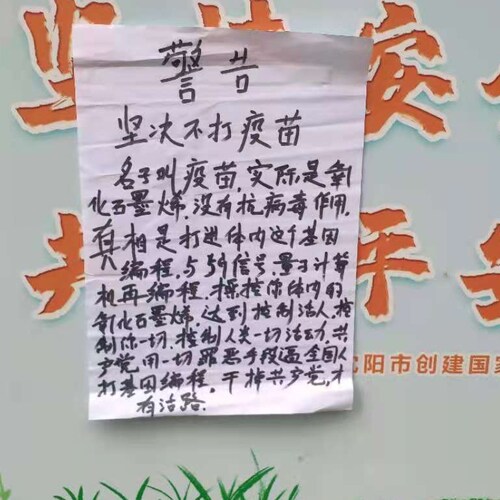 坚 安
共 平
警告
坚决不打疫苗
名子叫疫苗,实际是氧
化石墨烯,没有抗病毒作用,
真相是打进体内这个基因
编程,与5G信号,量子计算
机再编程,操控你体内的
氧化石墨烯,达到控制活人,控
制你一切,控制人类一切活动,共
产党用一切邪恶手段逼全国人
打基因编程,干掉共产党,才
有活路.
沈阳市创建国家